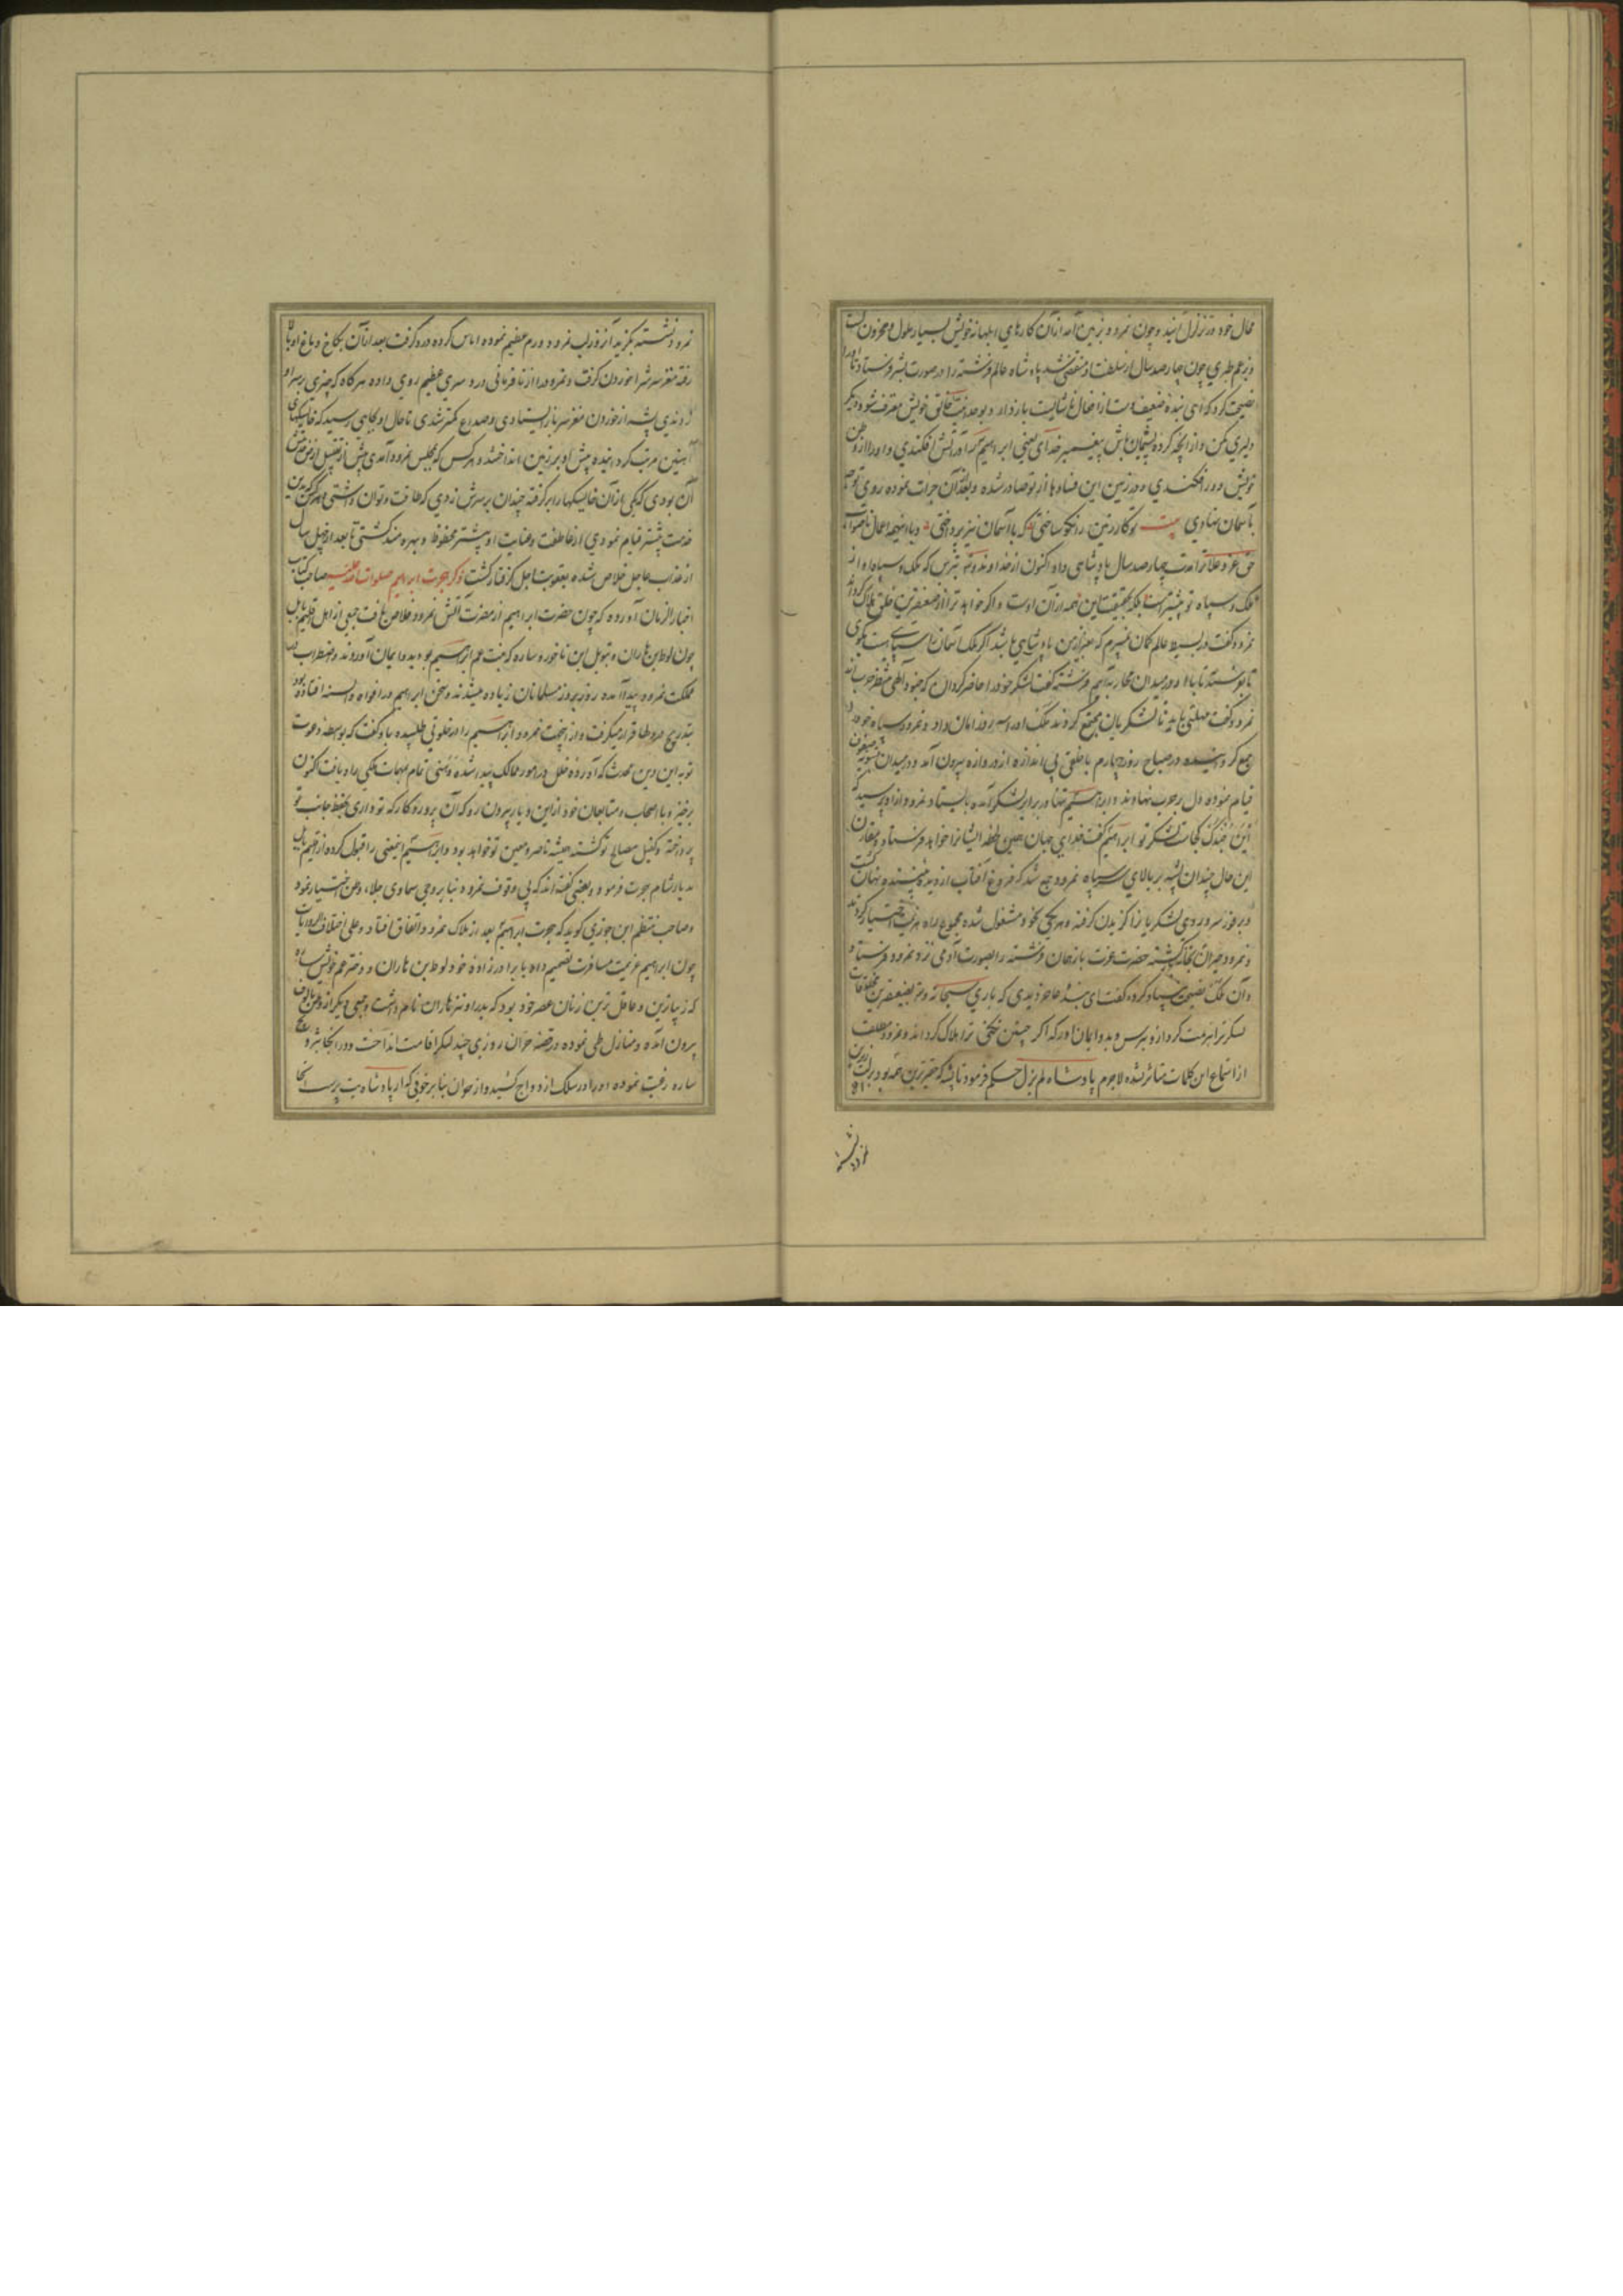 محال خود در تزلزل آیند و چون نمرود بزمین آمد ازان کارهای ابلهانه خویش بسیار ملول و محزون گشت
و بزعم طبری چون چهارصد سال از سلطنت او منقضی شد پادشاه عالم فرشته را در صورت بشر فرستاد تا او را
نصیحت کرد که ای بنده ضعیف دست از افعال ناشایست بازدار و بوحدانیت خالق خویش معترف شو و دیگر
دلیری مکن و از آنچه کرده پشیمان باش پیغمبر خدای یعنی ابراهیم را در آتش افکندی و او را از وطن
خویش دور افکندی و در زمین این فسادها از تو صادر شده و بعد آن جرات نموده روی توجه
بآسمان نهادی بیت تو کار زمین را نکو ساختی که با آسمان نیز پرداختی و با اینهمه اعمال ناصواب
حق عز و علا ترا مدت چهارصد سال پادشاهی داد اکنون از خداوند بترس که ملک و سپاه او از
ملک و سپاه تو بیشتر است بلکه بحقیقت این همه ازان اوست و اگر خواهد ترا از ضعیفترین خلق هلاک گرداند
نمرود گفت در بسیط عالم گمان نمیبرم که بغیر از من پادشاهی باشد اگر ملک آسمان را سپاهی هست بگوی
تا بفرستد تا با او در میدان محاربه آییم فرشته گفت لشکر خود را حاضر گردان که جنود الهی منتظر حرب اند
نمرود گفت مهلتی باید تا لشکریان مجتمع گردند ملک او را سه روز امان داد و نمرود سپاه خود را
جمع گردانیده در صباح روز چهارم با خلقی بی اندازه از دروازه بیرون آمد و در میدان بتسویه صفوف
قیام نموده دل بر حرب نهادند و ابراهیم تنها در برابر لشکر آمده بایستاد نمرود از او پرسید که
این جندک کجاست لشکر تو ابراهیم گفت خدای جهان همین لحظه ایشانرا خواهد فرستاد و مقارن
این حال چندان پشه بر بالای سر سپاه نمرود جمع شد که فروغ آفتاب از دیده بیننده نهان گشت
و بر فور سر و روی لشکریانرا گزیدن گرفته و هر یکی بخود مشغول شده مجموع راه هزیمت اختیار کردند
و نمرود حیران بخانه برگشته حضرت عزت باز همان فرشته را بصورت آدمی نزد نمرود فرستاد
و آن ملک نصیحت بنیاد کرده گفت ای بنده عاجز دیدی که باری سبحانه و تعالی بضعیفترین مخلوقات
لشکر ترا هزیمت کرد ازو بترس و بدو ایمان آور که اگر چنین نکنی ترا هلاک گرداند و نمرود مطلقا
از استماع این کلمات متاثر نشده لاجرم پادشاه لم یزل حکم فرمود تا پشه که حقیرترین همه بود بر لب زیرین
نمرود نشسته
نمرود نشسته بگزید آنروز لب نمرود ورم عظیم نموده اماس کرده درد گرفت بعد ازان بکاخ دماغ او بالا
رفته مغز سرش را خوردن گرفت و نمرود را از نافرمانی درد سری عظیم روی داده هرگاه که چیزی بر سر او
زدندی پشه از خوردن مغز سر باز ایستادی و صداع کمتر شدی تا حال او بجایی رسید که خایسکهای
آهنین مرتب گردانیده پیش او بر زمین انداختند و هر کس که بمجلس نمرود آمدی پیش از تقبیل زمین
آن بودی که یکی ازان خایسکها را برگرفته چندان بر سرش زدی که طاقت و توان داشتی و هرکه بدین
خدمت بیشتر قیام نمودی از عاطفت و عنایت او بیشتر محظوظ و بهره مند گشتی تا بعد از چهل سال
از عذاب عاجل خلاص شده بعقوبت اجل گرفتار گشت ذکر هجرت ابراهیم صلوات الله علیه صاحب کتاب
اخبار الزمان آورده که چون حضرت ابراهیم از مضرت آتش نمرود خلاص یافت جمعی از اهل اقلیم بابل
چون لوط بن هاران و بتویل بن ناخور و ساره که بنت عم ابراهیم بود بدو ایمان آوردند و اضطراب در
مملکت نمرود پیدا آمده روز بروز مسلمانان زیاده میشدند و سخن ابراهیم در افواه و السنه افتاده بود
بتدریج در دلها قرار میگرفت و از اینجهت نمرود ابراهیم را در خلوتی طلبیده باو گفت که بواسطه دعوت
تو به این دین محدث که آورده خلل در امور ممالک پدید شده و وهنی تمام بمهمات ملکی راه یافت اکنون
برخیز و با اصحاب و متابعان خود ازین دیار بیرون رو که آن پروردگار که تو داری بحفظ جانب تو
پرداخته و کفیل مصالح تو گشته همیشه ناصر و معین تو خواهد بود و ابراهیم اینمعنی را قبول کرده از اقلیم بابل
بدیار شام هجرت فرمود و بعضی گفته اند که بی وقوف نمرود بنا بر وحی سماوی جلاء وطن اختیار نمود
و صاحب منتظم ابن جوزی گوید که هجرت ابراهیم بعد از هلاک نمرود اتفاق افتاد و علی اختلاف الروایات
چون ابراهیم عزیمت مسافرت تصمیم داد با برادرزاده خود لوط بن هاران و دختر عم خویش ساره
که زیباترین و عاقل ترین زنان عصر خود بود که پدر او نیز هاران نام داشت و جمعی دیگر از وطن مالوف
بیرون آمده و منازل طی نموده در قصبه حران روزی چند لنگر اقامت انداخت و در آنجا بتزویج
ساره رغبت نموده او را در سلک ازدواج کشید و از حران بنا بر خوفی که از پادشاه بت پرست آنجا